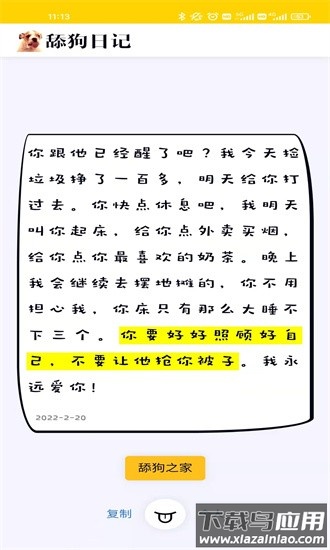 11:13
舔狗日记
你跟他已经醒了吧？我今天捡
垃圾挣了一百多，明天给你打
过去。你快点休息吧，我明天
叫你起床，给你点外卖买烟，
给你点你最喜欢的奶茶。晚上
我会继续去摆地摊的，你不用
担心我，你床只有那么大睡不
下三个。你要好好照顾好自
己，不要让他抢你被子。我永
远爱你！
2022-2-20
舔狗之家
复制
下载鸟应用
www.xiazainiao.com